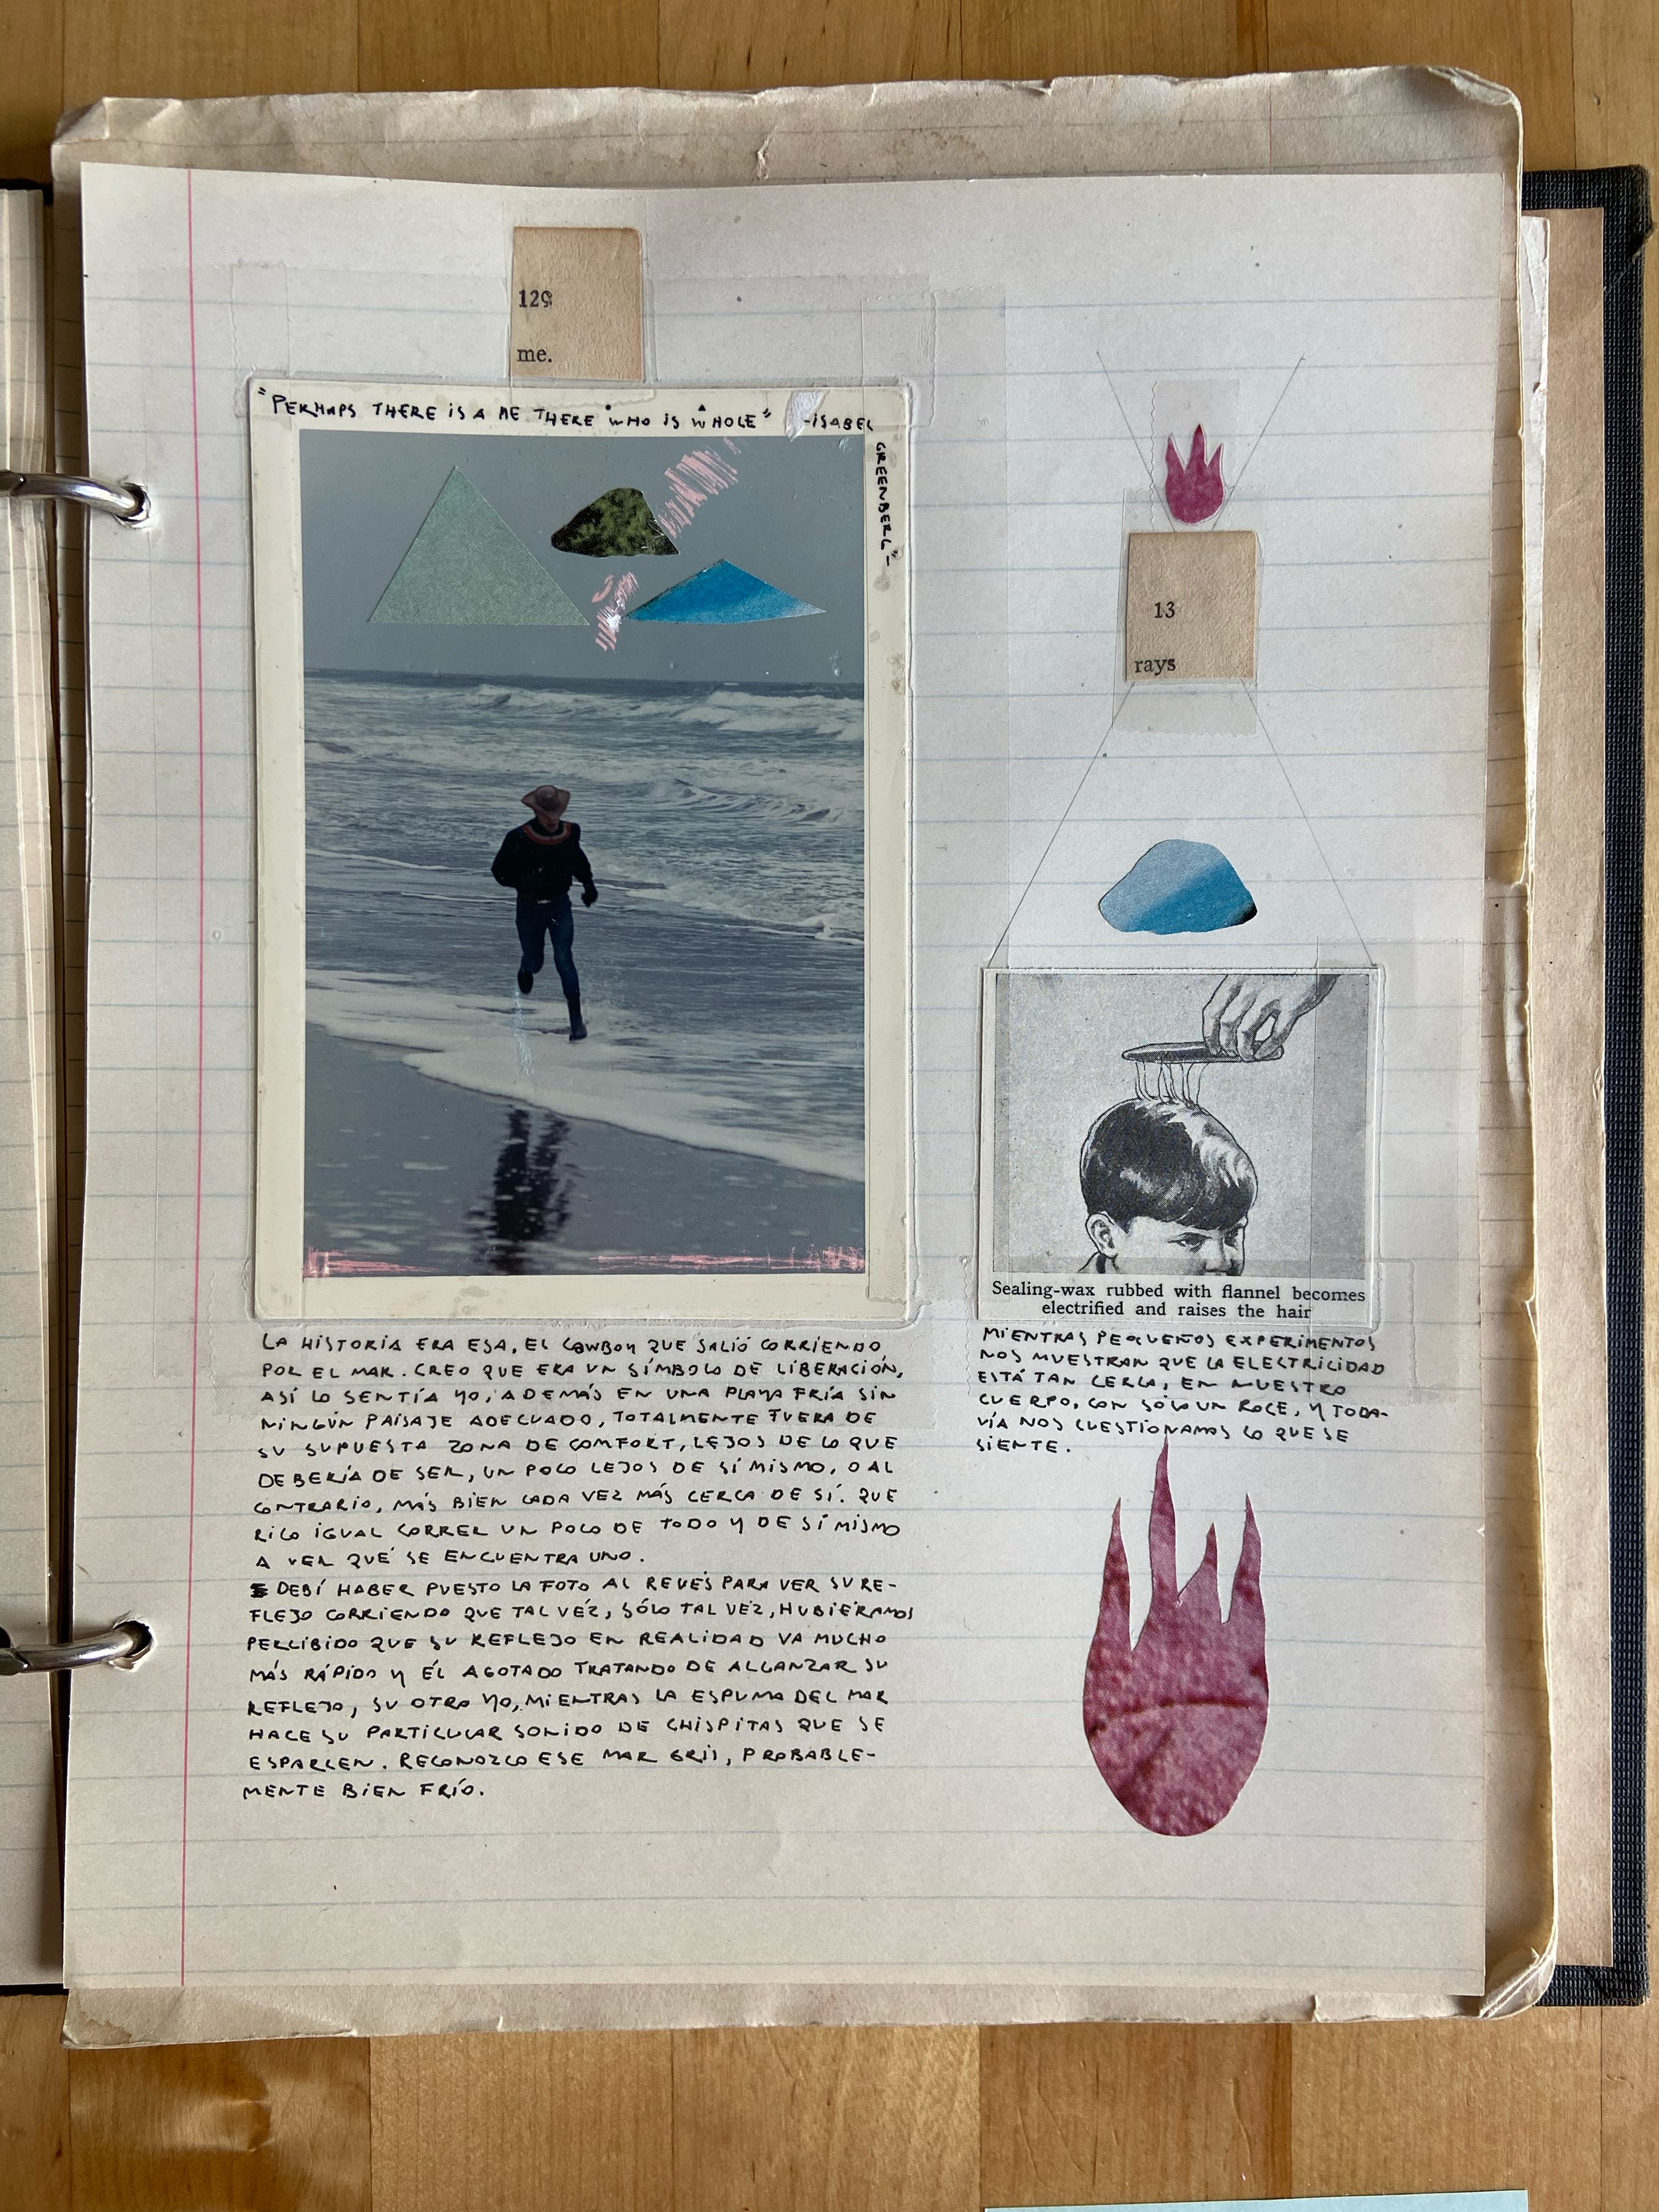 129
me.
"PERHAPS THERE IS A ME THERE WHO IS WHOLE" -ISABEL
GREENBERG-
LA HISTORIA ERA ESA, EL COWBOY QUE SALIÓ CORRIENDO
POR EL MAR. CREO QUE ERA UN SÍMBOLO DE LIBERACIÓN,
ASÍ LO SENTÍA YO, ADEMÁS EN UNA PLAYA FRÍA SIN
NINGÚN PAISAJE ADECUADO, TOTALMENTE FUERA DE
SU SUPUESTA ZONA DE COMFORT, LEJOS DE LO QUE
DEBERÍA DE SER, UN POCO LEJOS DE SÍ MISMO, O AL
CONTRARIO, MÁS BIEN CADA VEZ MÁS CERCA DE SÍ. QUE
RICO IGUAL CORRER UN POCO DE TODO Y DE SÍ MISMO
A VER QUÉ SE ENCUENTRA UNO.
DEBÍ HABER PUESTO LA FOTO AL REVÉS PARA VER SU RE-
FLEJO CORRIENDO QUE TAL VÉZ, SÓLO TAL VÉZ, HUBIÉRAMOS
PERCIBIDO QUE SU REFLEJO EN REALIDAD VA MUCHO
MÁS RÁPIDO Y ÉL AGOTADO TRATANDO DE ALCANZAR SU
REFLEJO, SU OTRO YO, MIENTRAS LA ESPUMA DEL MAR
HACE SU PARTICULAR SONIDO DE CHISPITAS QUE SE
ESPARCEN. RECONOZCO ESE MAR GRIS, PROBABLE-
MENTE BIEN FRÍO.
13
rays
Sealing-wax rubbed with flannel becomes
electrified and raises the hair
MIENTRAS PEQUEÑOS EXPERIMENTOS
NOS MUESTRAN QUE LA ELECTRICIDAD
ESTÁ TAN CERCA, EN NUESTRO
CUERPO, CON SÓLO UN ROCE, Y TODA-
VÍA NOS CUESTIONAMOS LO QUE SE
SIENTE.